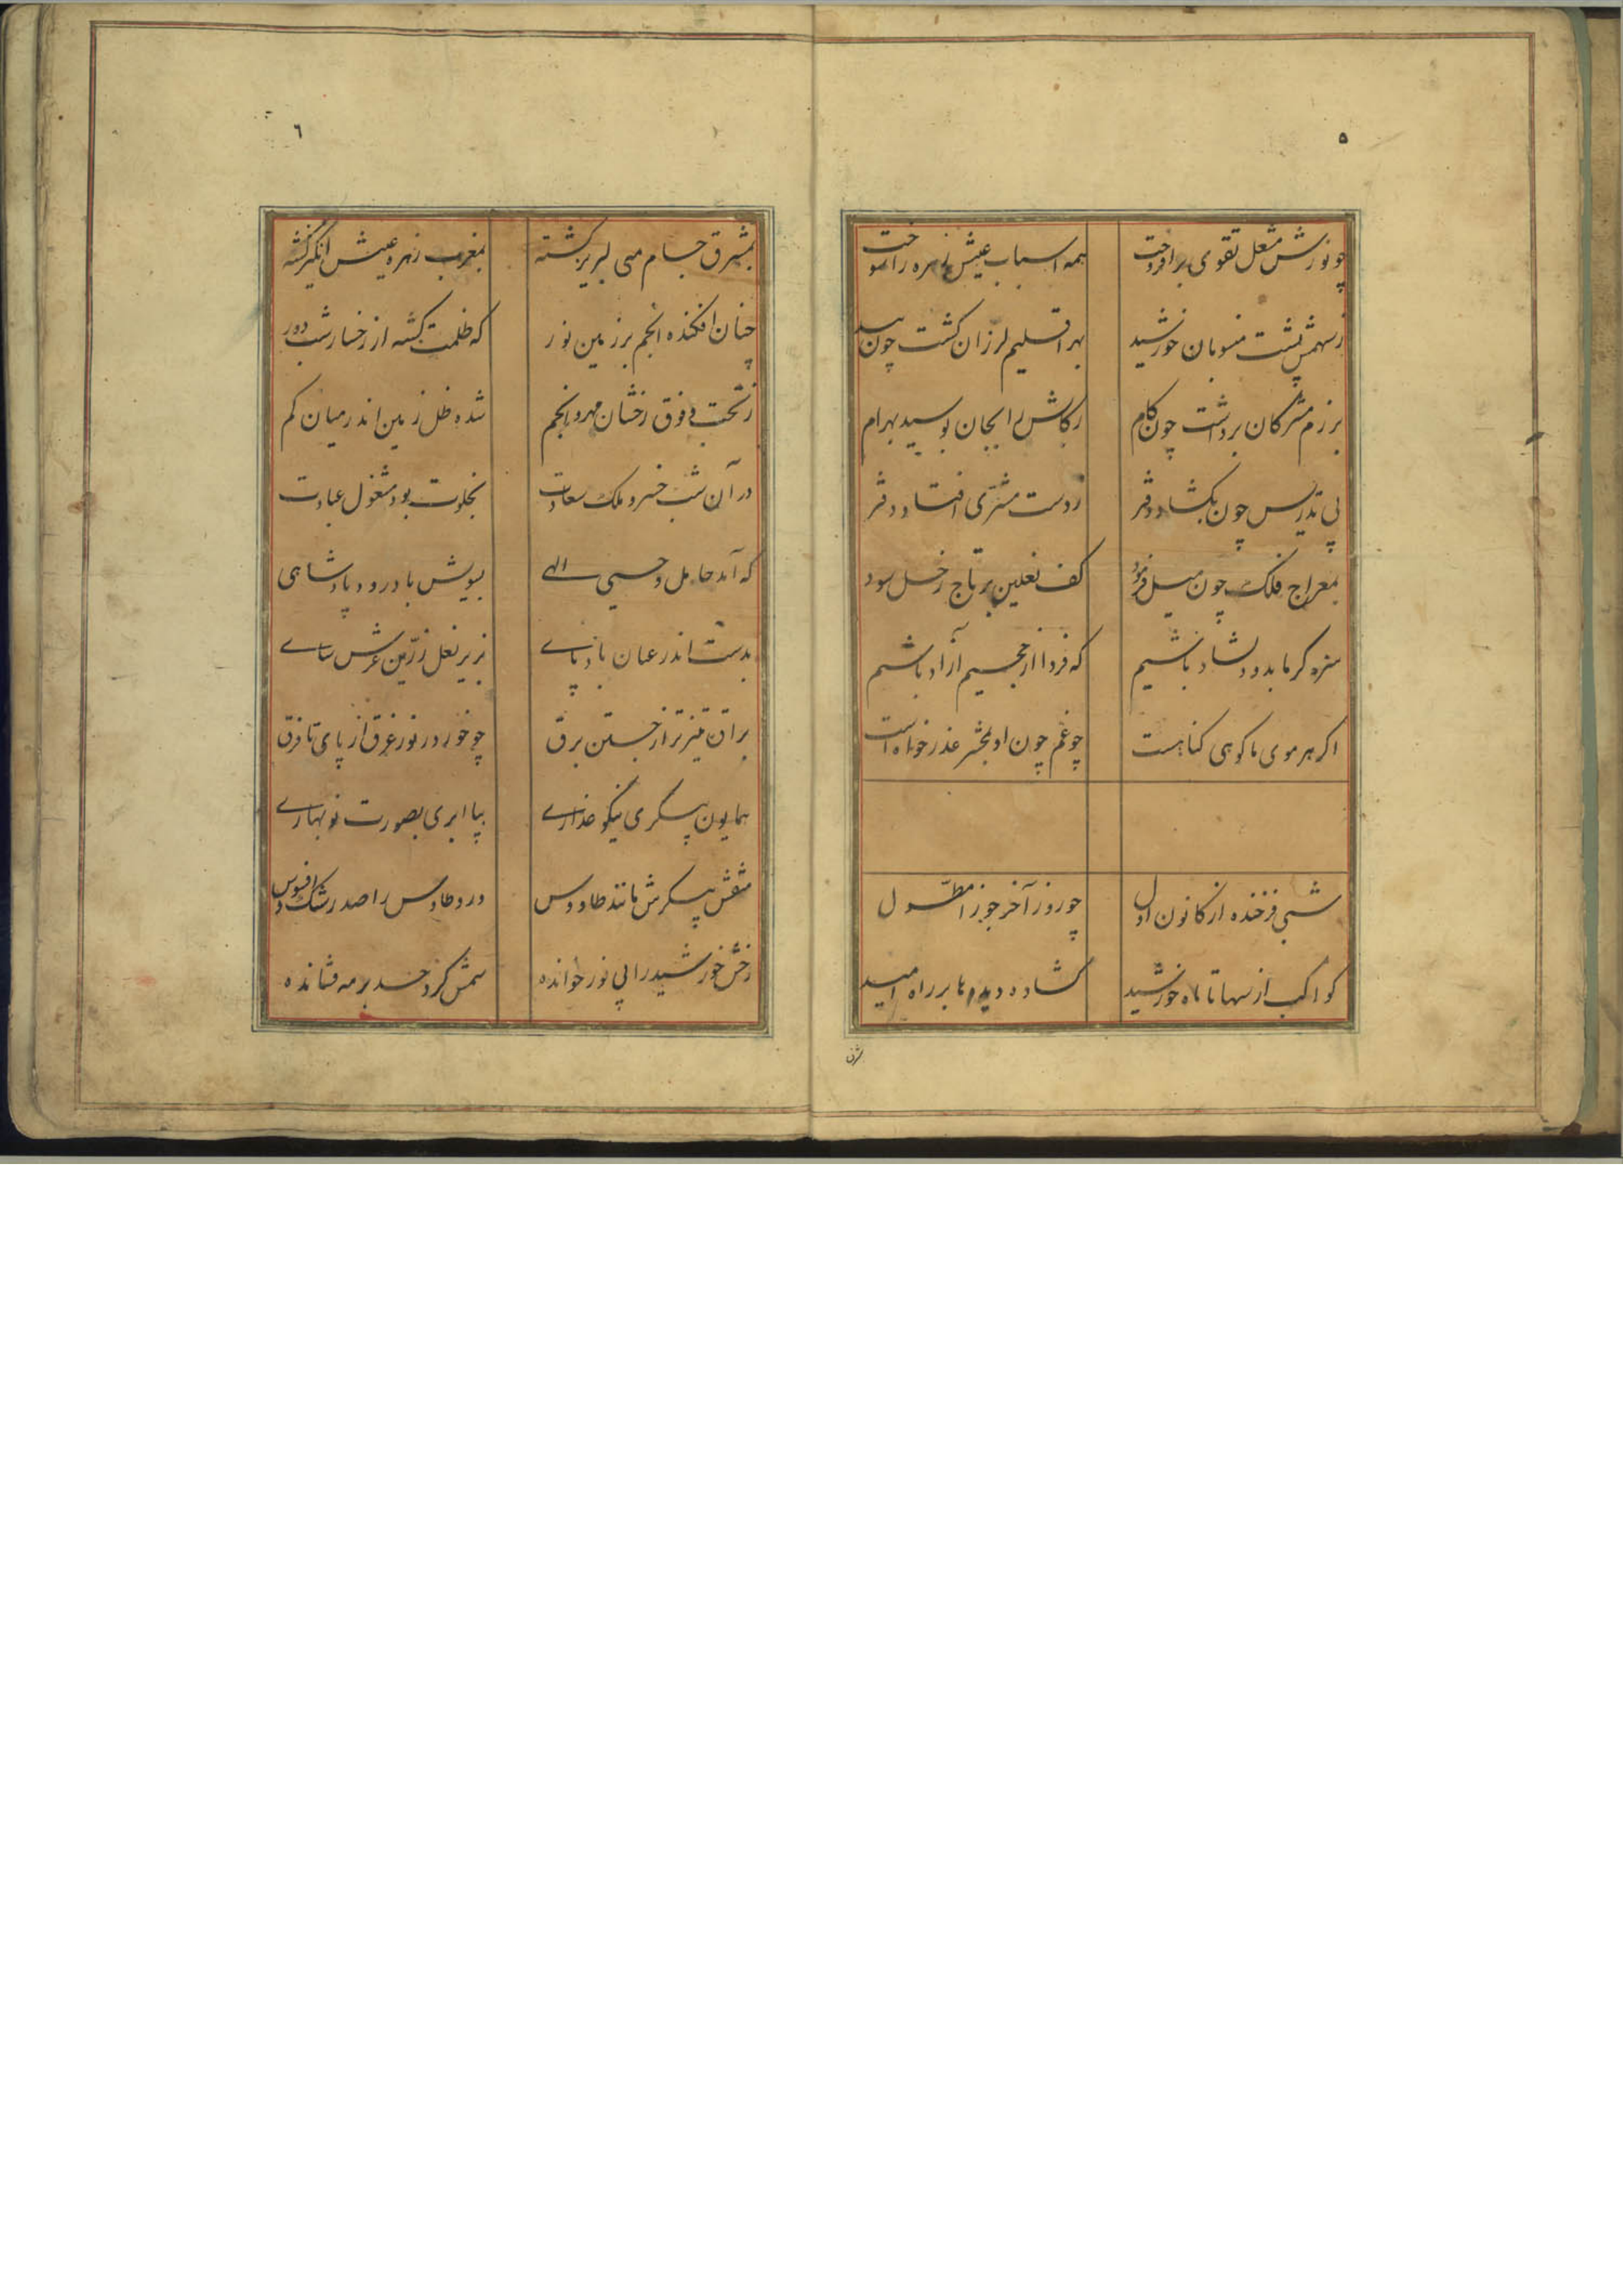 ۵
چو نورش مشعل تقوی برافروخت همه اسباب عیش زهره را سوخت
ز سهمش پشت منسوبان خورشید بهر اقلیم لرزان گشت چون بید
برزم مشرکان برداشت چون کام رکابش را بجان بوسید بهرام
پی تدریس چون بکشاد دفتر ز دست مشتری افتاد دفتر
بمعراج فلک چون میل فرمود کف نعلین بر تاج زحل سود
سزد کر ما بدو دلشاد باشیم که فردا از جحیم آزاد باشیم
اکر هر موی ما کوهی کناهست چو غم چون او بمحشر عذرخواه است
شبی فرخنده از کانون اول چو روز آخر جوزا مطول
کواکب از سها تا ماه و خورشید کشاده دیدها بر راه امید
بمشرق جام می لبریز کشته بمغرب زهره عیش انکیز کشته
۶
بمشرق جام می لبریز کشته بمغرب زهره عیش انکیز کشته
چنان افکنده انجم بر زمین نور که ظلمت کشته از رخسار شب دور
ز تحت و فوق رخشان مهر و انجم شده ظل زمین اندر میان کم
در آن شب خسرو ملک سعادت بخلوت بود مشغول عبادت
که آمد حامل وحی الهی بسویش با درود پادشاهی
بدست اندر عنان بادپای بزیر نعل زرین عرش سای
براق تیزتر از جستن برق چو خور در نور غرق از پای تا فرق
همایون پیکری نیکو عذاری بپا ابری بصورت نوبهاری
منقش پیکرش مانند طاووس درو طاوس را صد رشک و افسوس
رخش خورشید را بی نور خوانده سمش کرد حسد بر مه فشانده